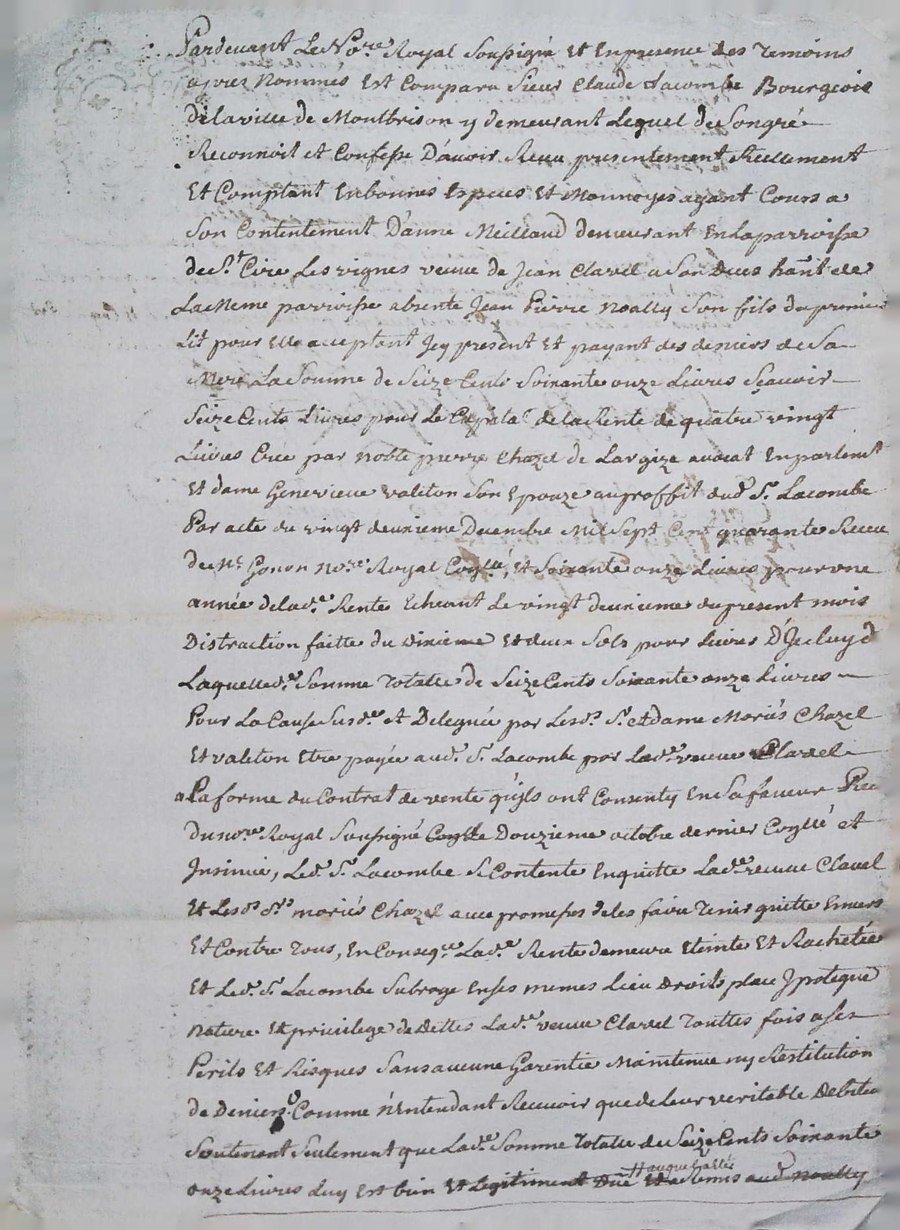 Pardevant Le No.re Royal Soussigné Et Enpresence des Temoins
apres Nommés Est Comparu Sieur Claude Lacombe Bourgeois
delaville de Montbrison y demeurant Lequel de Songré
Reconnoit et Confesse D'avoir Reçu presentement Reellement
Et Comptant Enbonnes Especes Et Monnoyes ayant Cours a
Son Contentement D'anne Meilland demeurant Enlaparroisse
de S.t Cire Les vignes veuve de Jean Clavel a Son Deces hant de
LaMeme parroisse absente Jean Pierre Noally Son fils du premier
Lit pour Elle acceptant Icy present Et payant des deniers de Sa
Mere La Somme de Seize Cents Soixante onze Livres Sçavoir
Seize Cents Livres pour Le Capital delaRente de quatre vingt
Livres Crée par Noble pierre Chazel de Largize avocat Enparlem.t
Et dame Genevieve valiton Son Epouze auproffit dud. S.r Lacombe
Par acte du vingt deuxieme Decembre Mil Sept Cent quarante Receu
de M.e Gonon No.re Royal Con.llé, Et Soixante onze Livres pour une
année delad.e Rente Echeant Le vingt deuxieme du present mois
Distraction faitte du dixieme Et deux Sols pour Livres D'Jceluy
Laquelled.e Somme Totalle de SeizeCents Soixante onze Livres
Pour La Cause Susd.e Et Deleguée par Lesd. S.r Et dame Mariés Chazel
Et valiton Etre payée aud. S.r Lacombe par Lad.e veuve Clavel
a Laforme du Contrat de vente qu'ils ont Consenty En Sa faveur Rec
Du no.re Royal Soussigné Le Douzieme octobre dernier Con.llé et
Jnsinué, Led. S.r Lacombe S. Contente Enquitte Lad.e veuve Clavel
Et Lesd. mariés Chazel avec promesses deles faire Tenir quitte Envers
Et Contre Tous, En Conseq.ce Lad.e Rente demeure Eteinte Et Rachetée
Et Led. S.r Lacombe Subroge Enses memes Lieu Droits place Jpoteque
Nature Et privilege de Dettes Lad.e veuve Clavel Touttes fois a Ses
Perils Et Risques Sansaucune Garentie Maintenue ny Restitution
de Deniers Comme N'Entendant Recevoir que deLeur veritable Debiteur
Soutenant Seulement que Lad.e Somme Totalle de SeizeCents Soixante
onze Livres Luy Est bien Et Legitiment Due Et a Remis aud. Noally